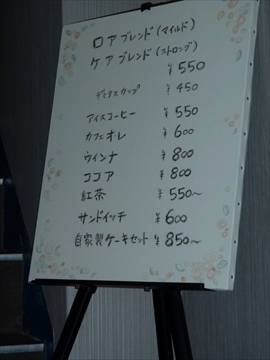 ロアブレンド(マイルド)
ケアブレンド(ストロング)
¥550
デミタスカップ ¥450
アイスコーヒー ¥550
カフェオレ ¥600
ウインナ ¥800
ココア ¥800
紅茶 ¥550〜
サンドイッチ ¥600
自家製ケーキセット ¥850〜